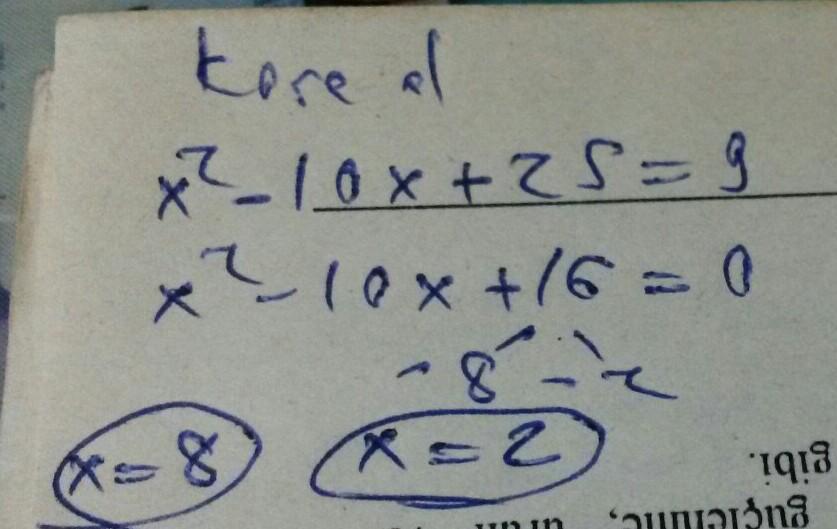 kare al
x² - 10x + 25 = 9
x² - 10x + 16 = 0
-8 -2
x = 8 x = 2
gibi.